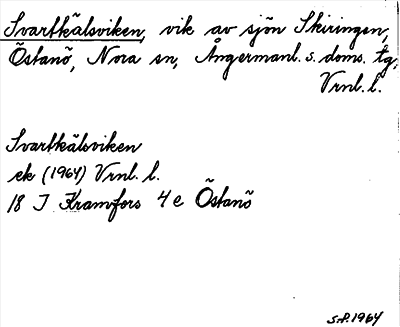 Svartkälsviken, vik av sjön Skiringen,
Östanö, Nora sn, Ångermanl. s. doms. tg,
Vrnl. l.
Svartkälsviken
ek (1964) Vrnl. l.
18 I Kramfors 4 e Östanö
S.P. 1964